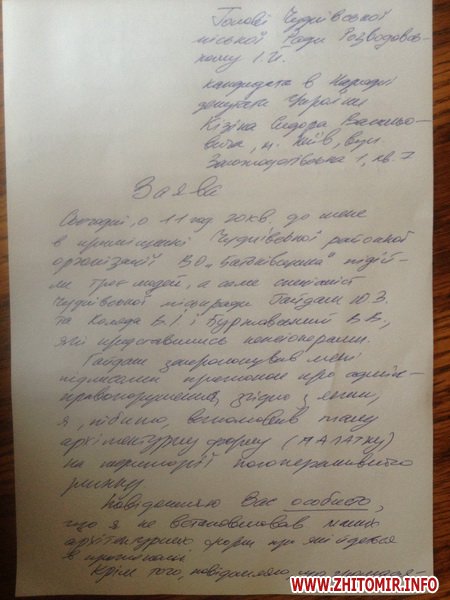 Голові Чуднівської
міської Ради Розводовсь-
кому І.Й.
кандидата в Народні
депутати України
Кізіна Сидора Васильо-
вича, м. Київ, вул.
1, кв. 7
Заява
Сьогодні, о 11 год 20 хв. до мене
в приміщенні Чуднівської районної
організації ВО „Батьківщина" підій-
ли троє людей, а саме спеціаліст
Чуднівської міськради Гайдаш Ю.З.
та Коляда В.І і Бурковський В.В,
які представились кооператорами.
Гайдаш запропонував мені
підписати протокол про адмін-
правопорушення, згідно з яким,
я, нібито, встановив малу
архітектурну форму (ПАЛАТКУ)
на території кооперативного
ринку.
Повідомляю Вас особисто,
що я не встановлював ніяких
архітектурних форм про які йдеться
в протоколі.
Крім того, повідомляю, що
www.zhitomir.info